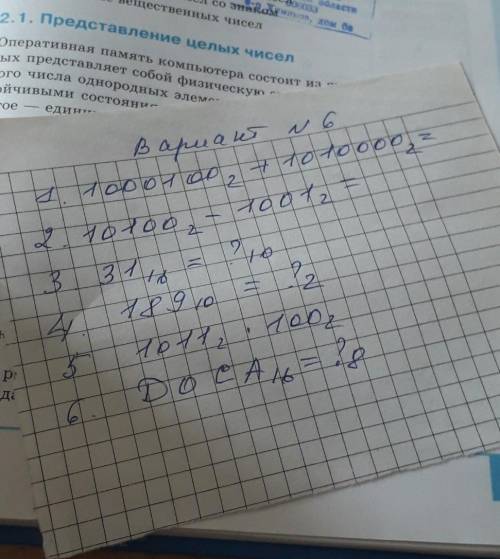 со знаком
вещественных чисел
области
2.1. Представление целых чисел
Оперативная память компьютера состоит из
представляет собой физическую
числа однородных
состояния
— един
Вариант N 6
1. 1000100₂ + 1010000₂ =
2. 10100₂ - 1001₂ =
3. 31₁₆ = ?₁₀
4. 189₁₀ = ?₂
5 1011₂ · 100₂
6. D0CA₁₆ = ?₈